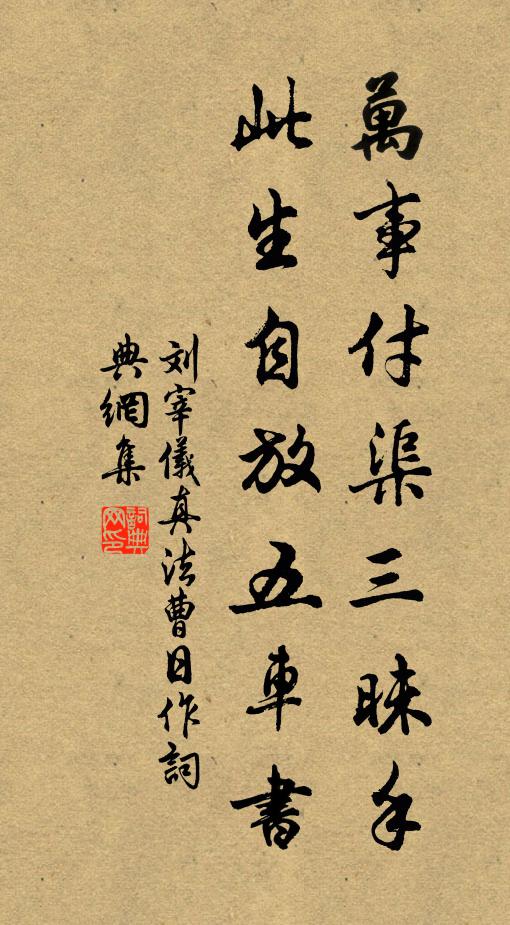 萬事付渠三昧手
此生自放五車書
刘宰儀真法曹日作詞
典網集
詞典
网印